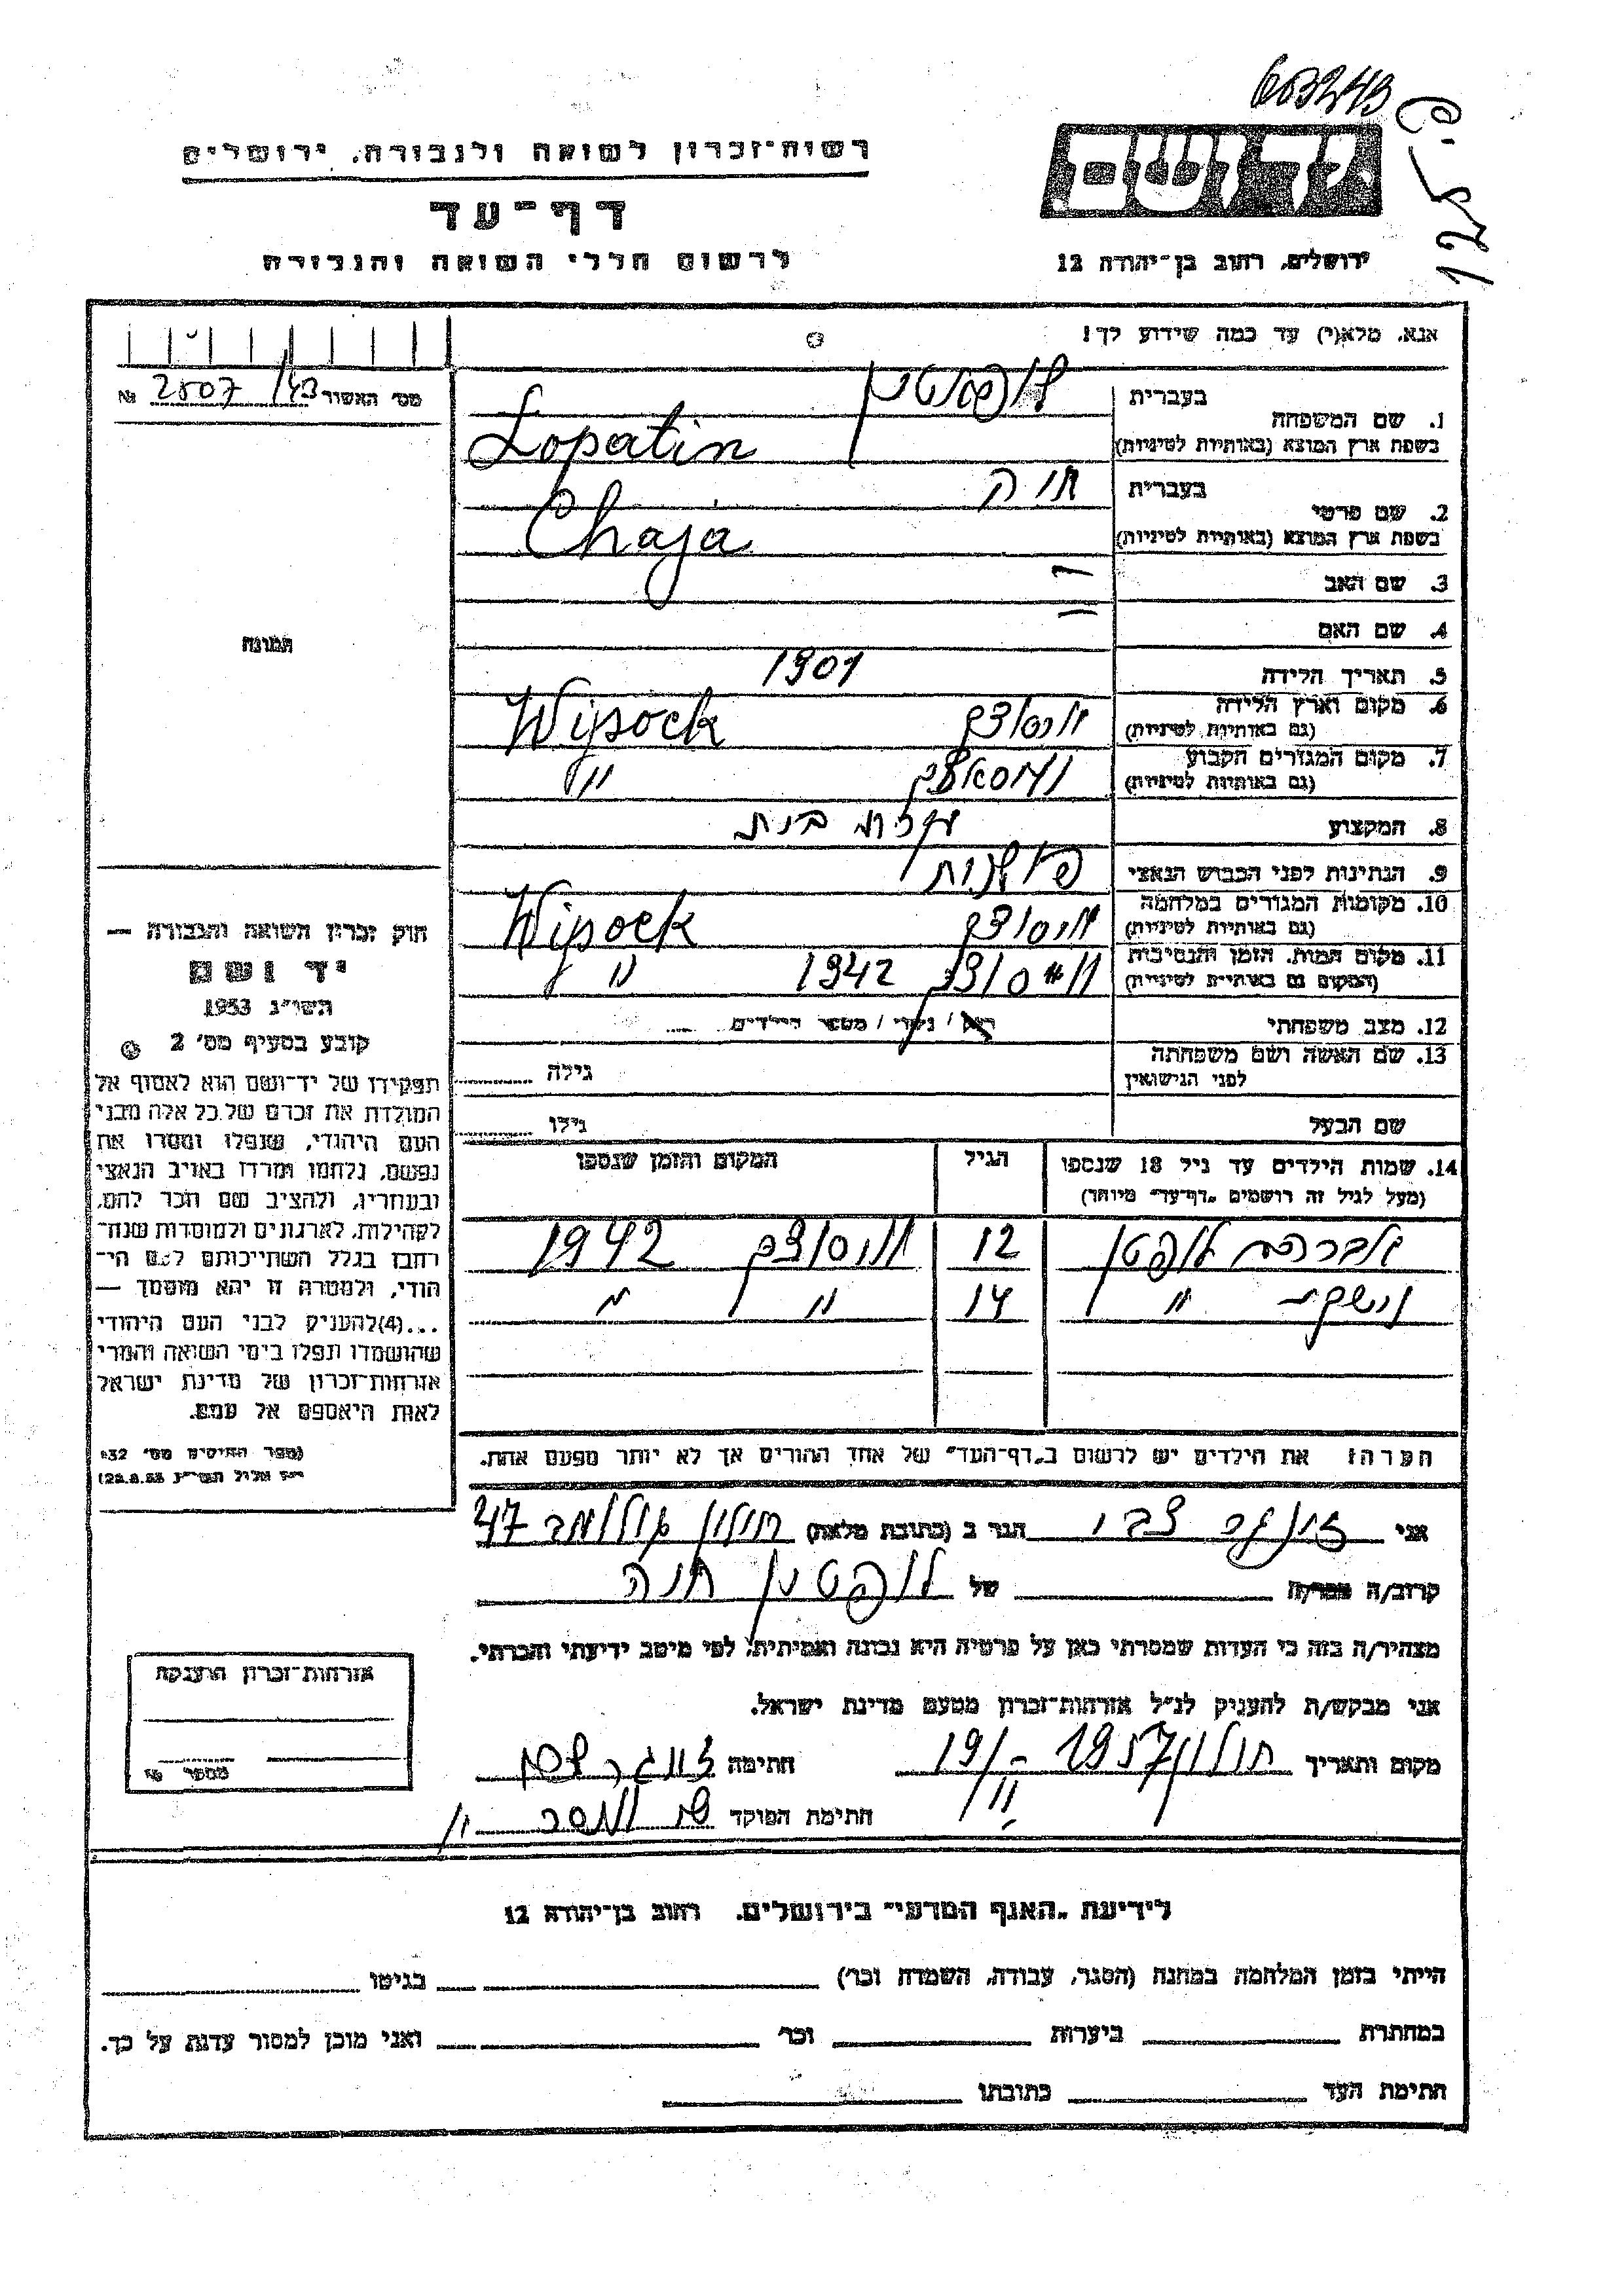 603243
125.פ
רשות־זכרון לשואה ולגבורה, ירושלים
דף־עד
לרשום חללי השואה והגבורה
יד ושם
ירושלים, רחוב בן־יהודה 12
אנא, מלא(י) עד כמה שידוע לך!
מס׳ האשור 2807/43 №
1. שם המשפחה
בעברית לופטין
בשפת ארץ המוצא (באותיות לטיניות) Lopatin
2. שם פרטי
בעברית חיה
בשפת ארץ המוצא (באותיות לטיניות) Chaja
3. שם האב —
4. שם האם
5. תאריך הלידה 1901
6. מקום וארץ הלידה
(גם באותיות לטיניות) ויסוצק Wysock
7. מקום המגורים הקבוע
(גם באותיות לטיניות) ויסוצק "
8. המקצוע עקרת בית
9. הנתינות לפני הכבוש הנאצי פולנית
10. מקומות המגורים במלחמה
(גם באותיות לטיניות) ויסוצק Wysock
11. מקום המות, הזמן והנסיבות
(המקום גם באותיות לטיניות) ויסוצק 1942 "
12. מצב משפחתי רווק / נשוי / מספר הילדים
13. שם האשה ושם משפחתה
לפני הנישואין גילה
שם הבעל גילו
14. שמות הילדים עד גיל 18 שנספו
(מעל לגיל זה רושמים „דף־עד” מיוחד)
הגיל
המקום והזמן שנספו
אברהם לופטין 12 ויסוצק 1942
" 14 " "
הערה: את הילדים יש לרשום ב„דף־העד” של אחד ההורים אך לא יותר מפעם אחת.
תמונה
חוק זכרון השואה והגבורה —
יד ושם
תשי״ג 1953
קובע בסעיף מס׳ 2
תפקידו של יד־ושם הוא לאסוף אל
המולדת את זכרם של כל אלה מבני
העם היהודי, שנפלו ומסרו את
נפשם, נלחמו ומרדו באויב הנאצי
ובעוזריו, ולהציב שם וזכר להם,
לקהילות, לארגונים ולמוסדות שנח־
רבו בגלל השתייכותם לעם הי־
הודי, ולמטרה זו יהא מוסמך —
...(4) להעניק לבני העם היהודי
שהושמדו ונפלו בימי השואה והמרי
אזרחות־זכרון של מדינת ישראל
לאות היאספם אל עמם.
(ספר החוקים מס׳ 132
י״ז אלול תשי״ג 28.8.53)
אני צבי הגר ב (כתובת מלאה) חולון 47
קרוב/ה מכר/ה של לופטין חיה
מצהיר/ה בזה כי העדות שמסרתי כאן על פרטיה היא נכונה ואמיתית, לפי מיטב ידיעתי והכרתי.
אני מבקש/ת להעניק לנ״ל אזרחות־זכרון מטעם מדינת ישראל.
מקום ותאריך חולון 1957 חתימה
חתימת הפוקד
אזרחות־זכרון הוענקה
מספר
לידיעת „האגף המדעי” בירושלים, רחוב בן־יהודה 12
הייתי בזמן המלחמה במחנה (הסגר, עבודה, השמדה וכו׳) בגיטו
במחתרת ביערות וכו׳ ואני מוכן למסור עדות על כך.
חתימת העד כתובתו